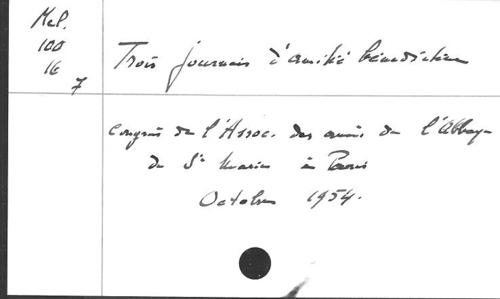 Mel.
100
16
7
Trois journées d'amitié bénédictine
Congrès de l'Assoc. des amis de l'Abbaye
de Ste Marie à Paris
Octobre 1954.